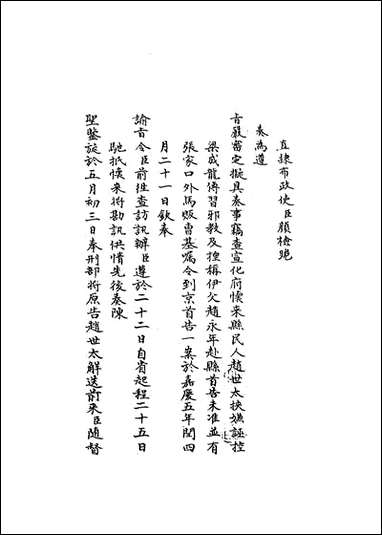 直隸布政使臣顏檢跪
奏為遵
旨嚴審定擬具奏事竊查宣化府懷來縣民人趙世太挾嫌誣控
梁成龍傳習邪教及捏稱伊父趙永年赴縣首告未准並有
張家口外馬販曹基囑令到京首告一案於嘉慶五年閏四
月二十一日欽奉
諭旨令臣前徃查訪訊辦臣遵於二十二日自省起程二十五日
馳抵懷来將勘訊供情先後奏陳
聖鑒旋於五月初三日奉刑部將原告趙世太解送前来臣隨督